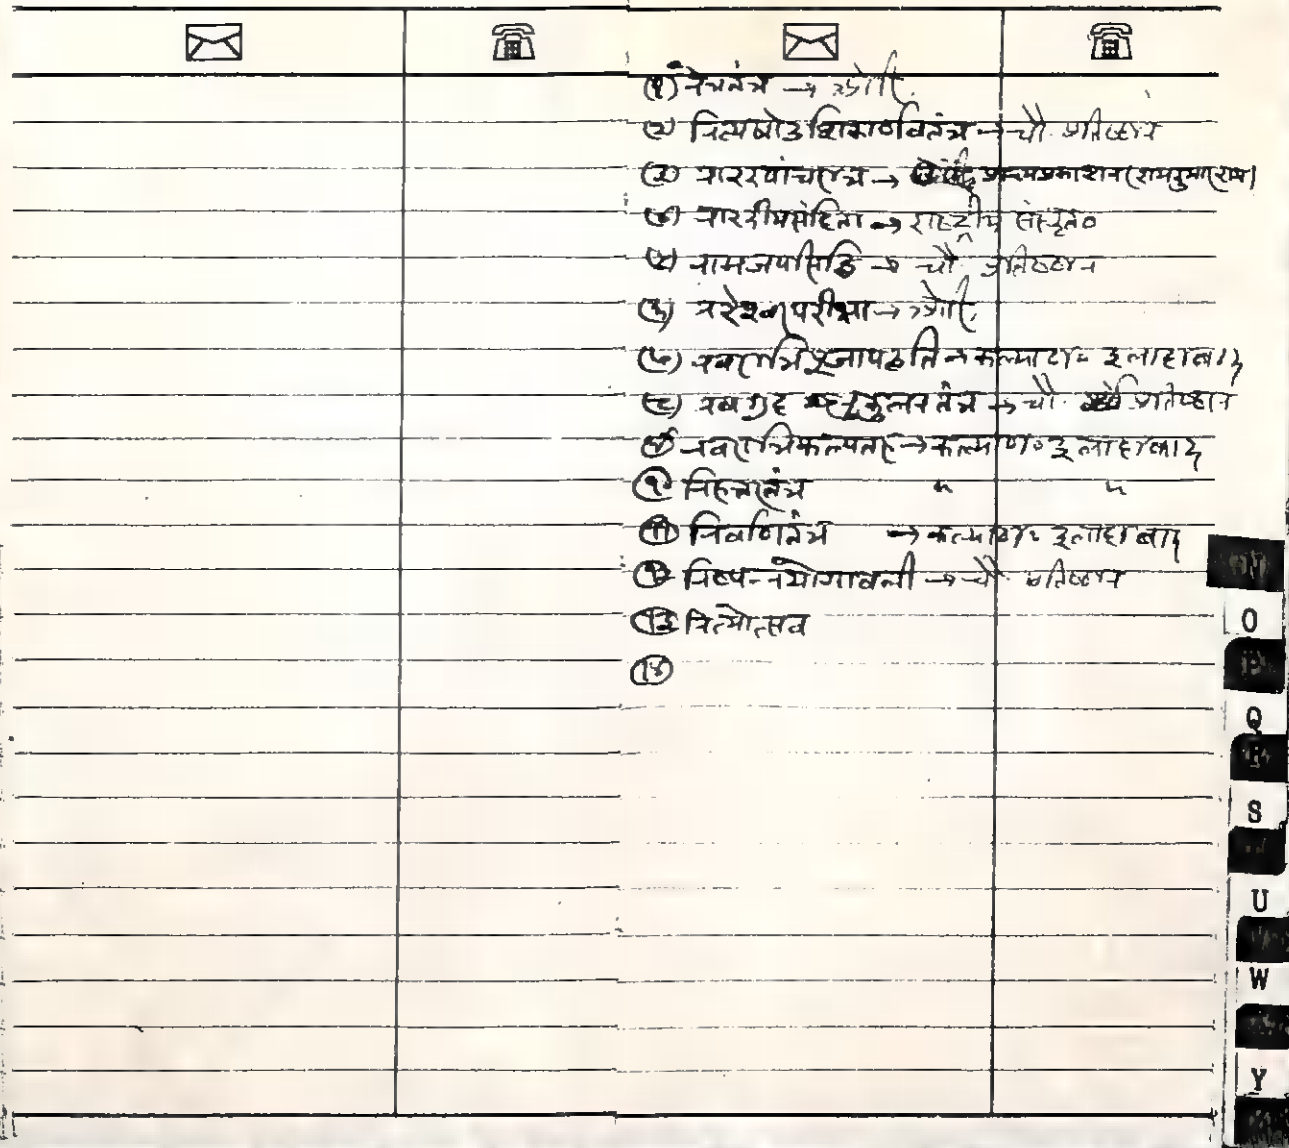 (१) नेत्रतंत्र →
(२) नित्याषोडशिकार्णवतंत्र → चौ. प्रतिष्ठान
(३) नारदपांचरात्र → प्राच्यप्रकाशन (रामकुमार राय)
(४) नारदीयसंहिता → राष्ट्रीय संस्कृत०
(५) नामजपसिद्धि → चौ. प्रतिष्ठान
(६) नरेश्वरपरीक्षा →
(७) नवरात्रिपूजापद्धति → कल्याण० इलाहाबाद
(८) नवग्रह तंत्र → चौ. प्रतिष्ठान
(९) नवरात्रिकल्पतरु → कल्याण० इलाहाबाद
(१०) निरुत्तरतंत्र " "
(११) निर्वाणतंत्र → कल्याण० इलाहाबाद
(१२) निष्पन्नयोगावली → चौ. प्रतिष्ठान
(१३) नित्योत्सव
(१४)
N
O
P
Q
R
S
U
W
Y